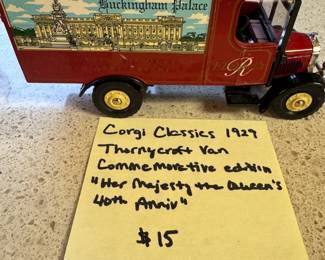 Buckingham Palace
R
Corgi Classics 1929
Thornycroft Van
Commemorative edition
"Her Majesty the Queen's
40th Anniv"
$15